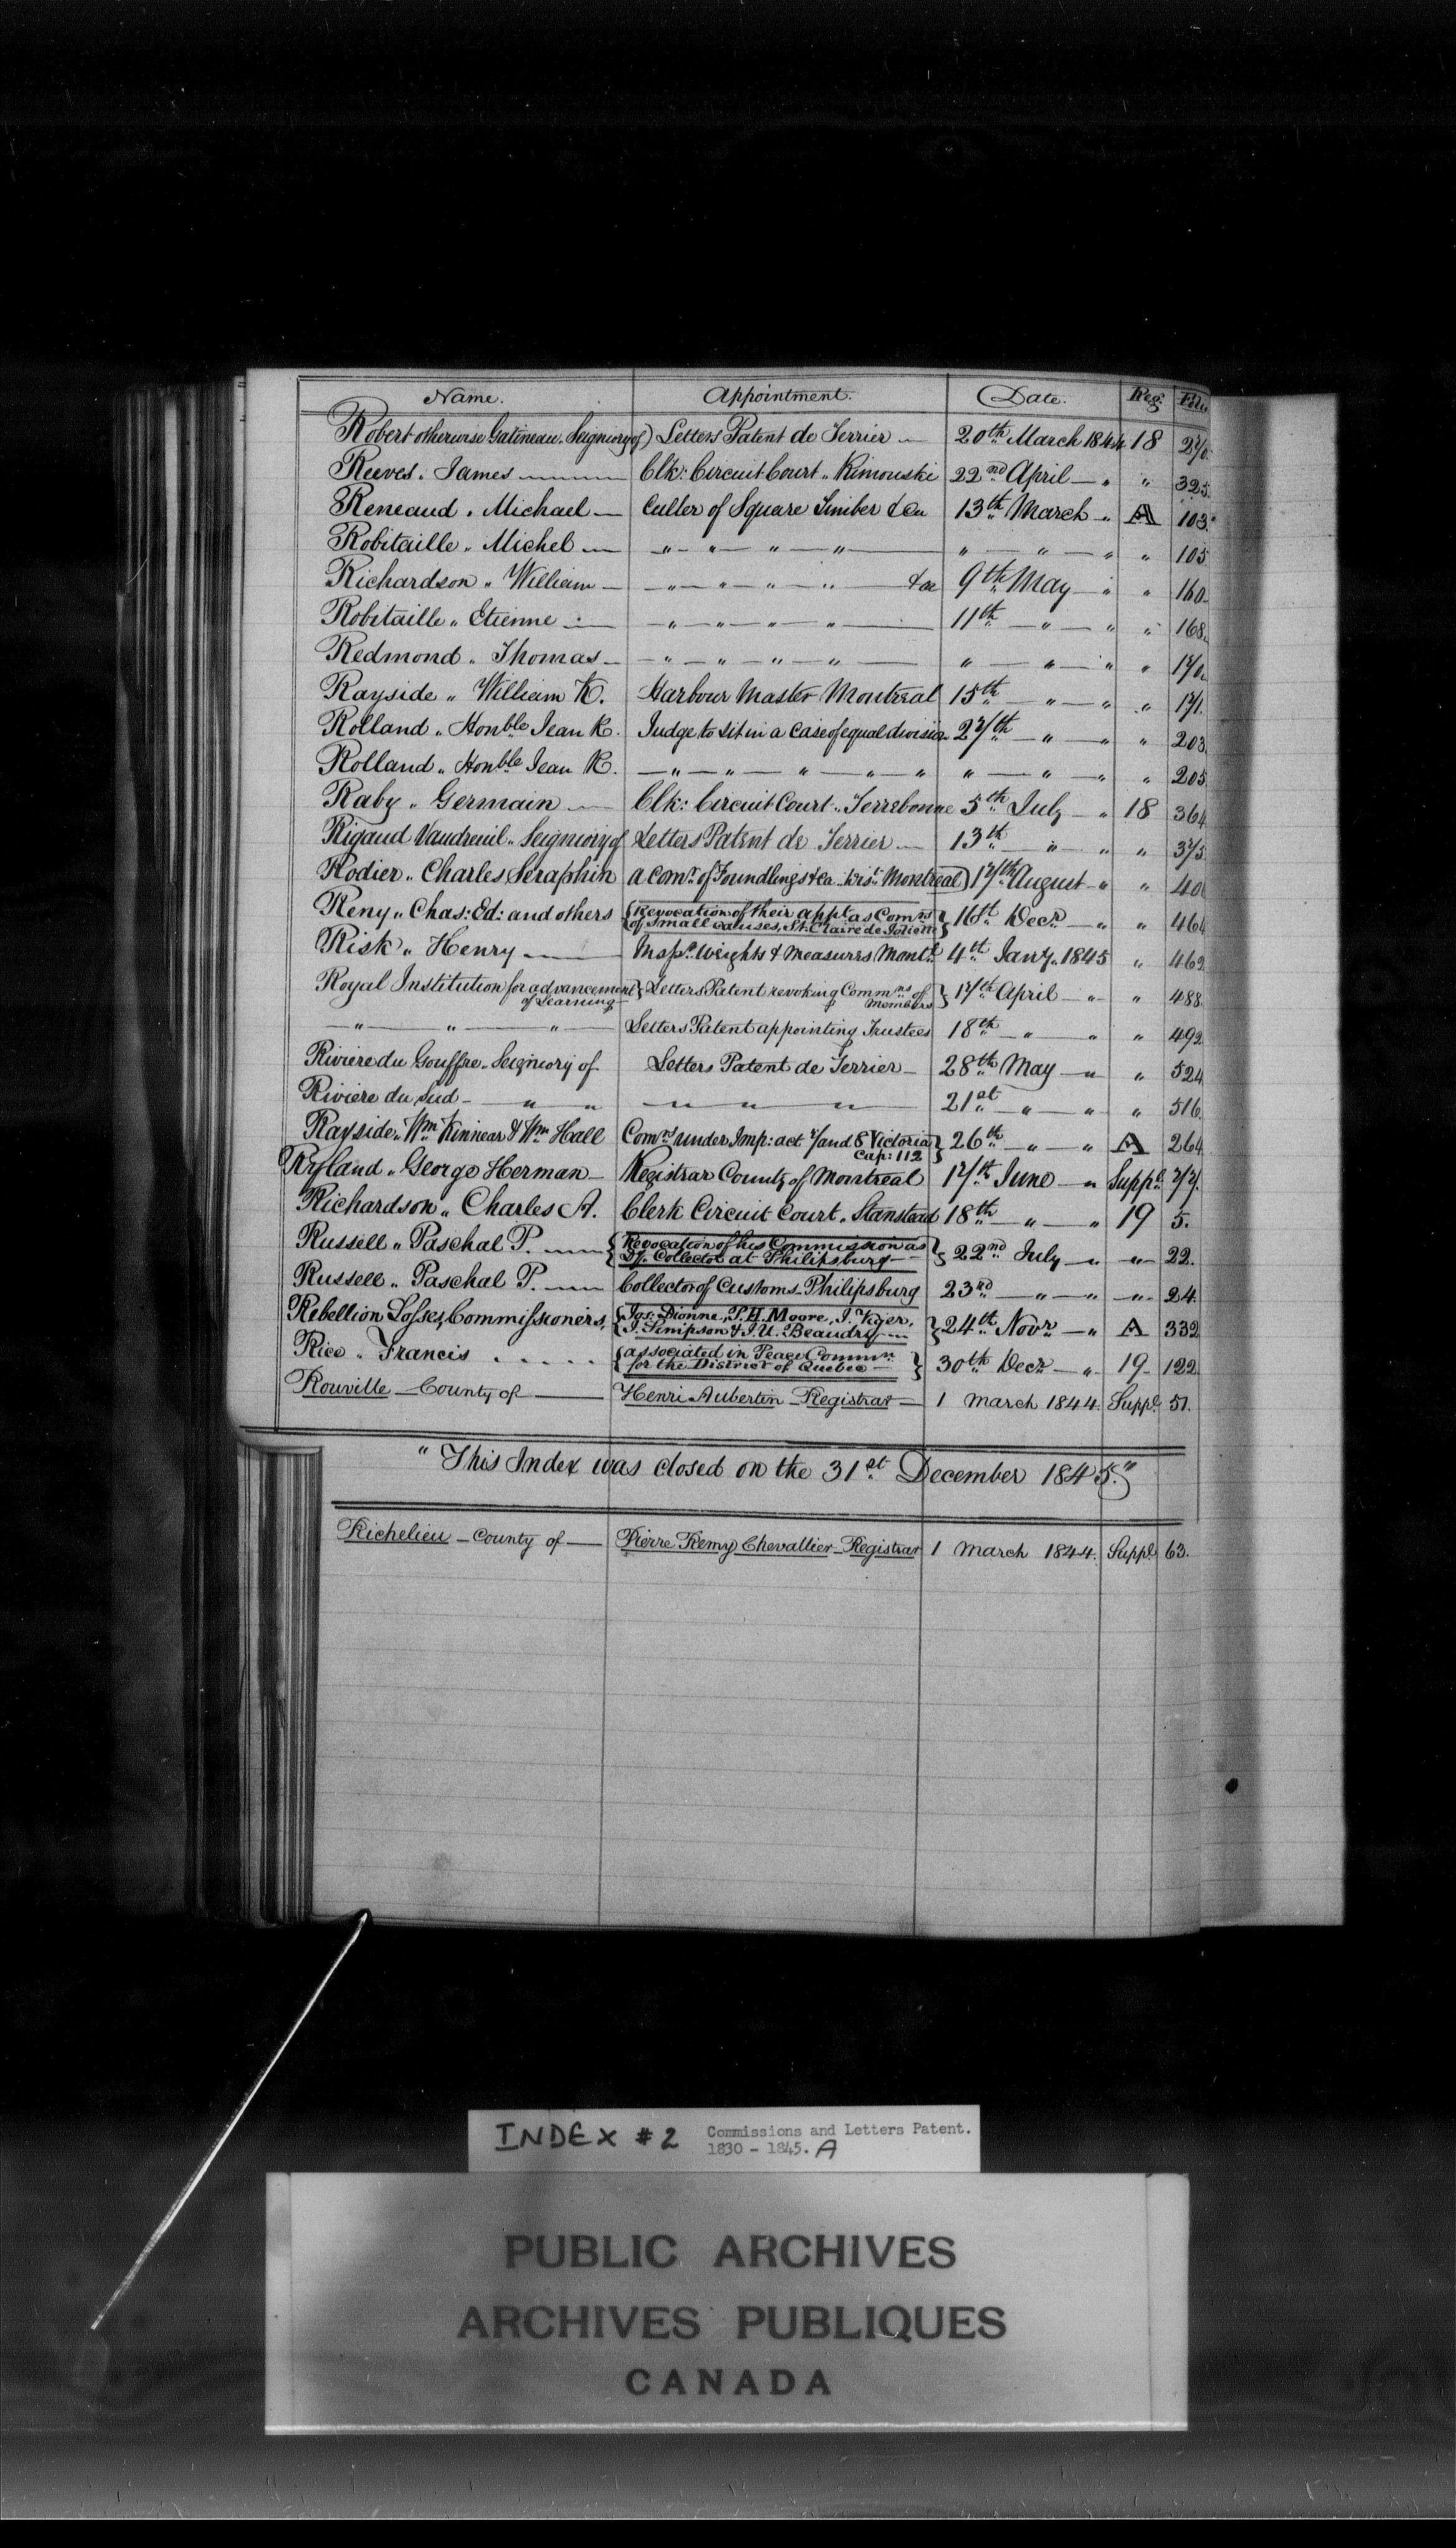 Name. Appointment. Date. Reg: Folio
Robert otherwise Gatineau. Seigniory of) Letters Patent de Terrier 20th March 1844 18 270.
Reeves. James Clk: Circuit Court „ Rimouski 22nd April — „ „ 325.
Reneaud. Michael — Culler of Square Timber &ca 13th March „ A 103.
Robitaille „ Michel — „ — „ — „ — „ — „ — „ — „ „ 105
Richardson „ William — — „ — „ — „ — „ — &ca 9th May — „ „ 160.
Robitaille „ Etienne — — „ — „ — „ — „ — 11th — „ — „ „ 168.
Redmond „ Thomas — — „ — „ — „ — „ — „ — „ — „ „ 170.
Rayside „ William K. Harbour Master Montreal 15th „ — „ „ 171.
Rolland „ Honble Jean R. Judge to sit in a case of equal division 27th — „ — „ „ 203.
Rolland „ Honble Jean R. — „ — „ — „ — „ — „ „ — „ — „ „ 205.
Raby „ Germain — Clk: Circuit Court „ Terrebonne 5th July — „ 18 364
Rigaud Vaudreuil „ Seigniory of Letters Patent de Terrier — 13th — „ — „ „ 375.
Rodier „ Charles Seraphin a Comr. of Foundlings &ca Dist. Montreal) 17th August — „ „ 401
Reny „ Chas: Ed: and others { Revocation of their appt. as Comrs } 16th Decr. — „ „ 464
of Small causes, St. Claire de Joliette
Risk „ Henry — Inspr. Weights & Measures Montl. 4th Jany. 1845 „ 469.
Royal Institution for advancement } Letters Patent revoking Commns of } 17th April — „ „ 488.
of Learning — members
— „ — „ — „ — Letters Patent appointing Trustees 18th „ — „ „ 492
Riviere du Gouffre „ Seigniory of Letters Patent de Terrier — 28th May — „ „ 524
Riviere du Sud — „ „ — „ — „ — „ — 21st — „ — „ „ 516.
Rayside „ Wm. Kinnear & Wm Hall Comrs under Imp: act 7 and 8 Victoria } 26th — „ — „ A 264
Cap: 112
Ryland „ George Herman — Registrar County of Montreal 17th June — „ Suppl. 77.
Richardson „ Charles A. Clerk Circuit Court „ Stanstead 18th — „ — „ 19 5.
Russell „ Paschal P. — { Revocation of his Commission as } 22nd July — „ — „ — 22.
Dy. Collector at Philipsburg —
Russell „ Paschal P. — Collector of Customs — Philipsburg 23rd — „ — „ — „ — 24.
Rebellion Losses, Commissioners, { Jos: Dionne, P. H. Moore, J. Viger, } 24th Novr — „ A 332
J. Simpson & J. U. Beaudry —
Rice „ Francis . . . . . { associated in Peace Commn. } 30th Decr — „ 19 — 122
for the District of Quebec —
Rouville — County of — Henri Aubertin — Registrar — 1 March 1844. Suppl. 51.
"This Index was closed on the 31st December 1845."
Richelieu — County of — Pierre Remy Chevallier — Registrar 1 March 1844. Suppl. 63.
INDEX #2 Commissions and Letters Patent.
1830 - 1845. A
PUBLIC ARCHIVES
ARCHIVES PUBLIQUES
CANADA